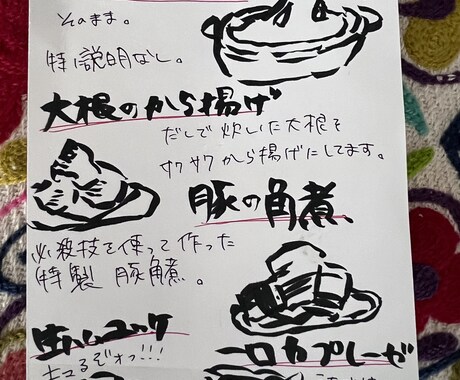 そのまま。
特に説明なし。
大根のから揚げ
だしで炊いた大根を
サクサクから揚げにしてます。
豚の角煮
必殺技を使って作った
特製 豚角煮。
生ハムユッケ
キマるぞオっ!!!
一口カプレーゼ